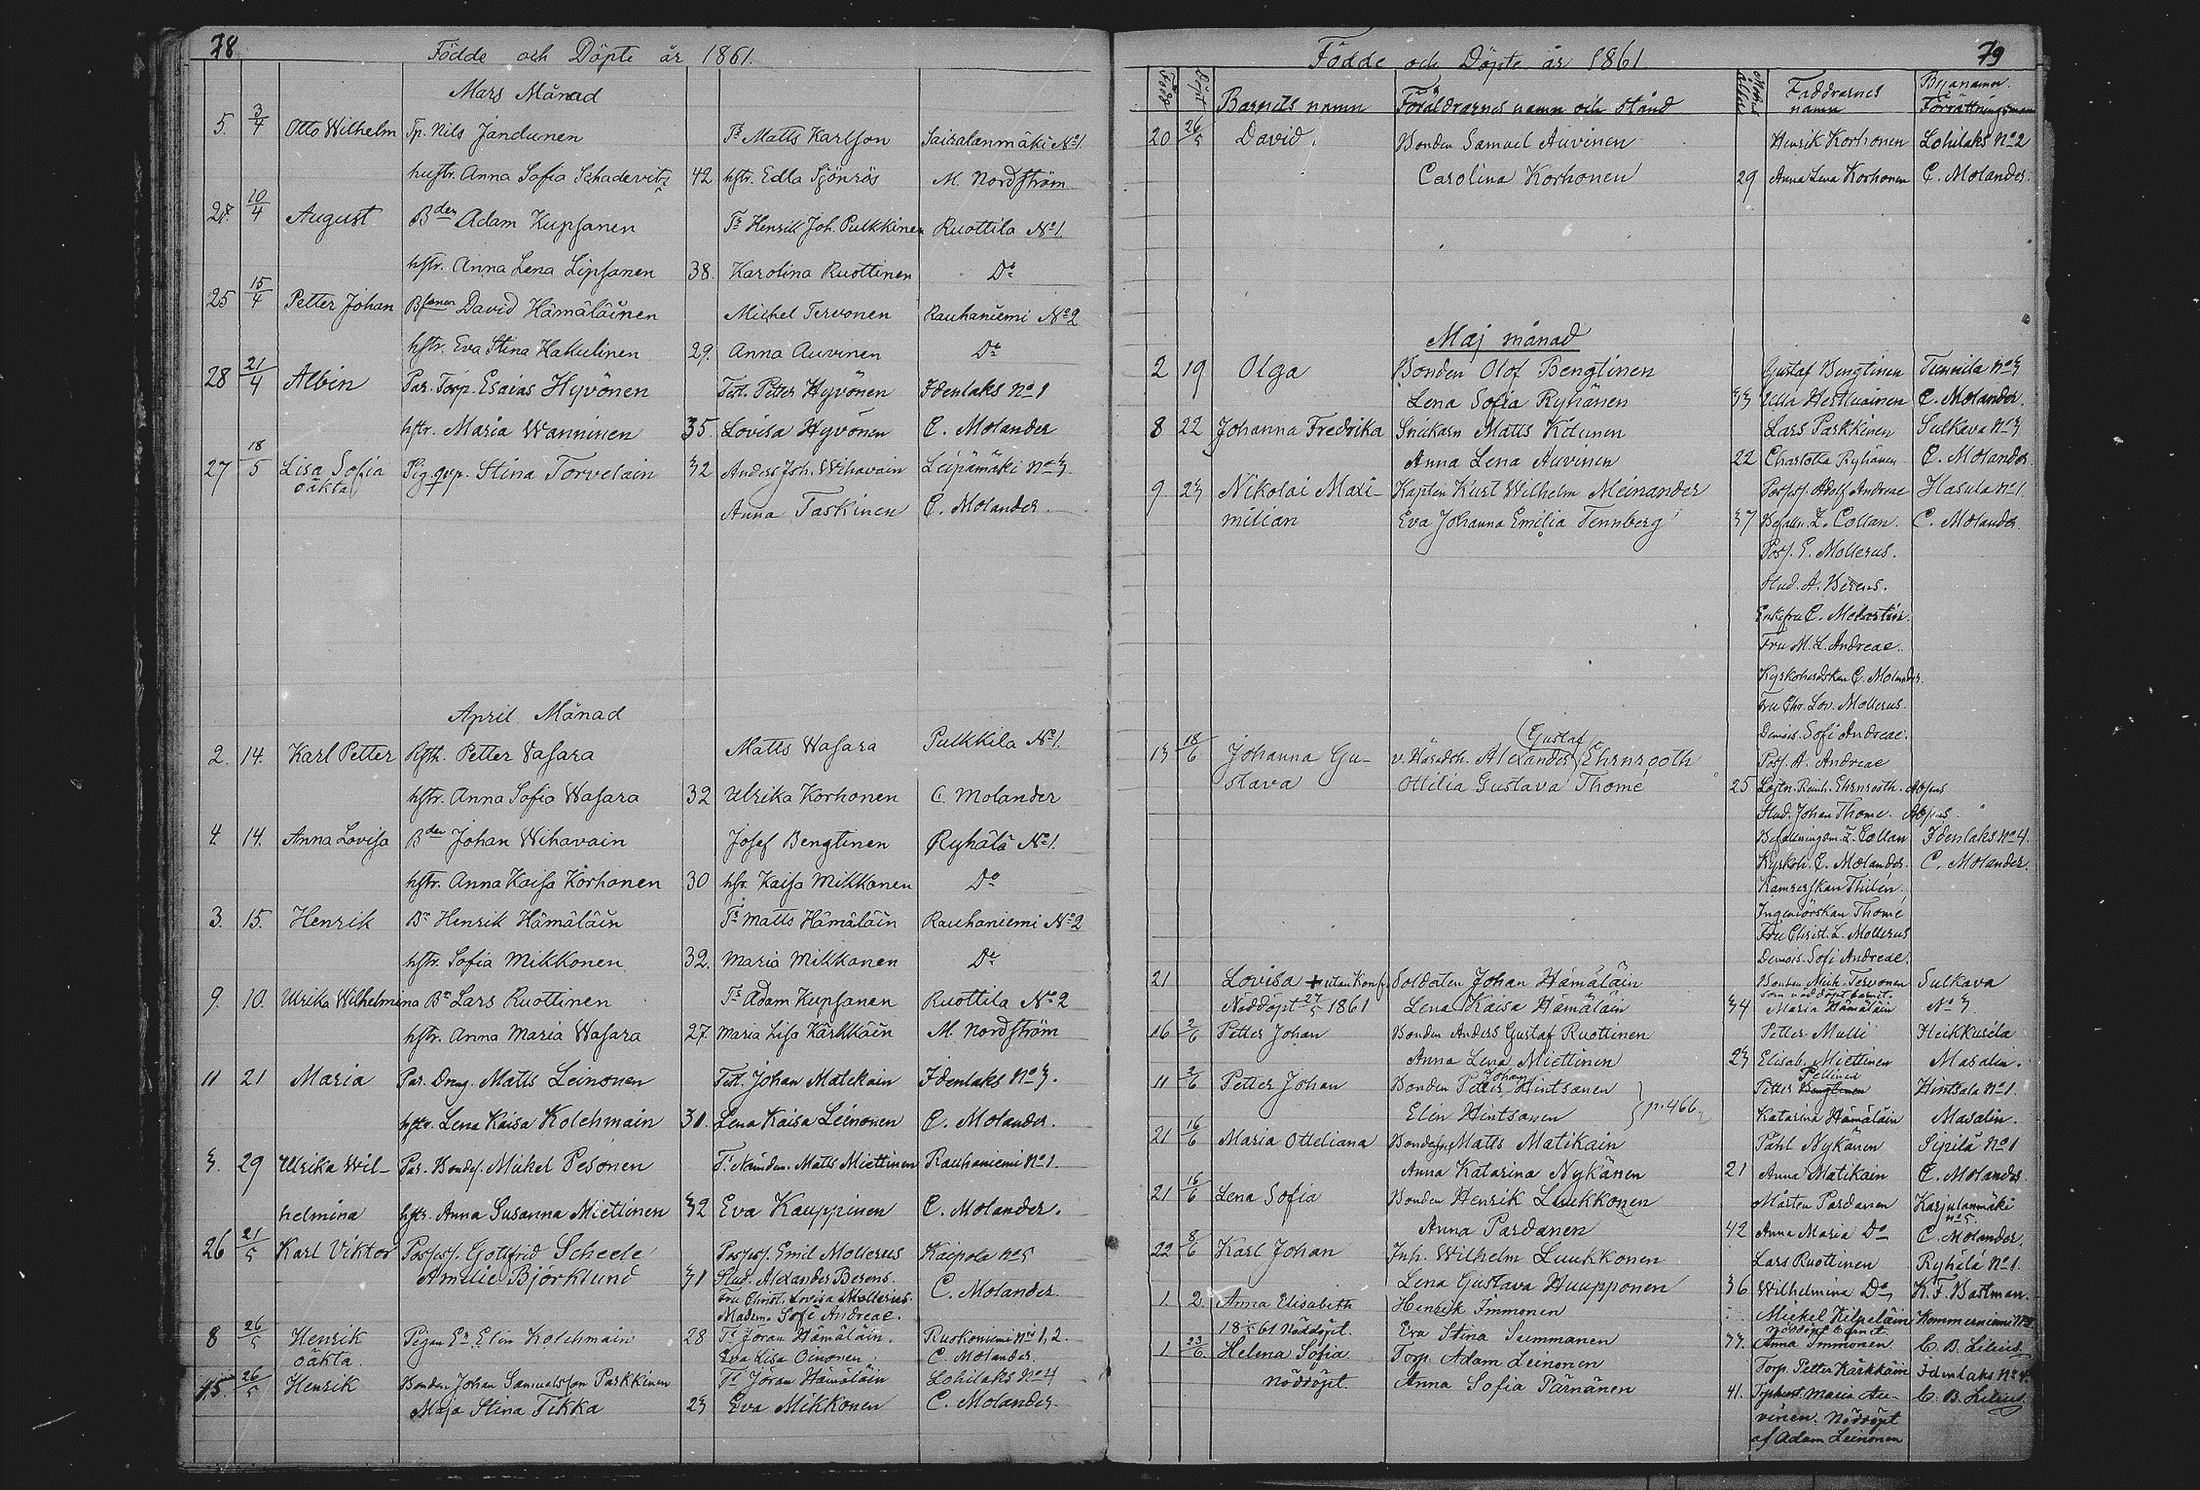 78
Födde och Döpte år 1861.
Mars Månad
5. 3/4 Otto Wilhelm Tp. Nils Jandunen Ts Matts Karlsson Sairalanmäki No 1.
hustr. Anna Sofia Schadevitz 42 hstr. Edla Sjönrös M. Nordström
10/4 August Bden Adam Kupsanen Ts Henrik Joh. Pulkkinen Ruottila No 1.
hstr. Anna Lena Lipsanen 38. Karolina Ruottinen Do
25 15/4 Petter Johan Bsonen David Hämäläinen Michel Tervonen Rauhaniemi No 2
hstr. Eva Stina Hakulinen 29. Anna Auvinen Do
28 21/4 Albin Par. Torp. Esaias Hyvönen Test. Peter Hyvönen Idenlaks No 1
hstr. Maria Wanninen 35. Lovisa Hyvönen C. Molander
27 18/5 Lisa Sofia Pig. Stina Torvelain 32 Anders Joh. Wihavain Leipämäki No 3.
oäkta Anna Taskinen C. Molander.
April Månad
2. 14. Karl Petter Petter Vasara Matts Wasara Pulkkila No 1.
hstr. Anna Sofia Wasara 32 Ulrika Korhonen C. Molander
4. 14. Anna Lovisa Bden Johan Wihavain Josef Bengtinen Ryhälä No 1.
hstr. Anna Kaisa Korhonen 30 hsr. Kaisa Mikkonen Do
3. 15. Henrik Bn Henrik Hämäläin Ts Matts Hämäläin Rauhaniemi No 2
hstr. Sofia Mikkonen 32. Maria Mikkanen Do
9. 10. Ulrika Wilhelmina Bn Lars Ruottinen Ts Adam Kupsanen Ruottila No 2
hstr. Anna Maria Wasara 27. Maria Lisa Kärkkäin M. Nordström
11 21 Maria Par. Dräng. Matts Leinonen Test. Johan Matekain Idenlaks No 3.
hstr. Lena Kaisa Kolehmain 30. Lena Kaisa Leinonen C. Molander.
3. 29 Ulrika Wil- Par. Bondes. Mickel Pesonen T. Nämdem. Matts Miettinen Rauhaniemi No 1.
helmina hstr. Anna Susanna Miettinen 32 Eva Kauppinen C. Molander.
26 21/5 Karl Viktor Possess. Gottfrid Scheele Possess. Emil Mollerus Kaipola No 5
Amalie Björklund 31 Stud. Alexander Berens. C. Molander.
Fru Christ. Lovisa Mollerus.
Madem. Sofi Andreae.
8 26/5 Henrik Pigan Er Elin Kolehmain 28 Ts Jöran Hämäläin. Ruokoniemi No 1, 2.
oäkta. Eva Lisa Oinonen C. Molander.
15 26/5 Henrik Bonden Johan Samuelsson Parkkinen Ts Jöran Hämäläin Lohilaks No 4
Maja Stina Tikka 23 Eva Mikkonen C. Molander.
79
Födde och Döpte år 1861
Född Döpt Barnets namn Föräldrarnes namn och stånd Faddrarnes namn Byanamn. Förrättningsman
20 26/5 David. Bonden Samuel Auvinen Henrik Korhonen Lohilaks No 2
Carolina Korhonen 29 Anna Lena Korhonen C. Molander.
Maj månad
2 19 Olga Bonden Olof Bengtinen Gustaf Bengtinen Tiemila No 3
Lena Sofia Ryhänen 33 Ulla Heiskainen C. Molander.
8 22 Johanna Fredrika Snickarn Matts Kolunen Lars Parkkinen Sulkava No 3
Anna Lena Auvinen 22 Charlotta Ryhänen C. Molander.
9 23 Nikolai Maxi- Kapten Kurt Wilhelm Meinander Possess. Adolf Andreae Hasula No 1.
milian Eva Johanna Emilia Tennberg 37 Befalln. Z. Collan. C. Molander.
Poss. E. Mollerus.
Stud. A. Berens.
Enkefru C.
Fru M. L. Andreae.
Kyrkoherdskan C. Molander.
Fru Chr. Lov. Mollerus.
Demois. Sofi Andreae.
13 18/6 Johanna Gu- v. Häradsh. Alexander Gustaf Ehrnrooth Poss. A. Andreae
stava Ottilia Gustava Thomé 25 Löjtn. Reinh. Ehrnrooth. Absens
Stud. Johan Thomé. Absens
Befallningsm. Z. Collan Idenlaks No 4.
Kyrkoh. C. Molander. C. Molander.
Kamrerskan Thilén.
Ingeniörskan Thomé
Fru Christ. L. Mollerus
Demois. Sofi Andreae.
21 Lovisa + utan Konf. Soldaten Johan Hämäläin Bonden Mich. Tervonen Sulkava
som nöddöpt barnet.
Nöddöpt 27/5 1861 Lena Kaisa Hämäläin 34 Maria Hämäläin No 3.
16 2/6 Petter Johan Bonden Anders Gustaf Ruottinen Petter Malli Heikkurila
Anna Lena Miettinen 23 Elisab. Miettinen Masalin.
11 2/6 Petter Johan Bonden Petter Johan Hintsanen Petter Bengtinen Pellinen Hintsala No 1.
Elin Hintsanen p. 466. Katarina Hämäläin Masalin.
21 16/6 Maria Otteliana Bondes. Matts Matikain Påhl Nykänen Sipilä No 1
Anna Katarina Nykänen 21 Anna Matikain C. Molander
21 16/6 Lena Sofia Bonden Henrik Luukkonen Mårten Pardanen Karjulanmäki No 5.
Anna Pardanen 42 Anna Maria Do C. Molander.
22 8/6 Karl Johan Inh. Wilhelm Luukkonen Lars Ruottinen Ryhälä No 1.
Lena Gustava Huupponen 36 Wilhelmina Do K. F. Bastman.
1. 2. Anna Elisabeth Henrik Immonen Mickel Kilpeläin Kommerniemi No 2
nöddöpt barnet.
18 61 Nöddöpt. Eva Stina Summanen Anna Immonen C. B. Lilius.
1. 23/6. Helena Sofia Torp. Adam Leinonen Torp. Petter Kärkkäin Idenlaks No 4.
Nöddöpt. Anna Sofia Pärnänen 41. Maria Au- C. B. Lilius.
vinen. Nöddöpt
af Adam Leinonen